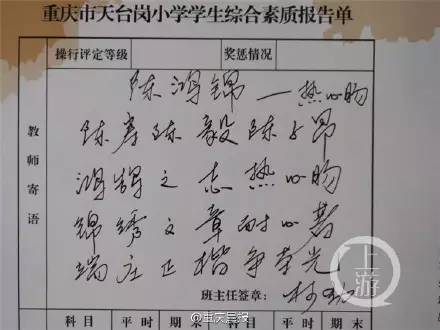 重庆市天台岗小学学生综合素质报告单
操行评定等级 奖惩情况
教师寄语
陈鸿锦 — 热心肠
陈寿陈毅陈子昂
鸿鹄之志热心肠
锦绣文章耐心著
端庄正楷争荣光
班主任签章：
科目 平时 期末 科目 平时 期末
上游